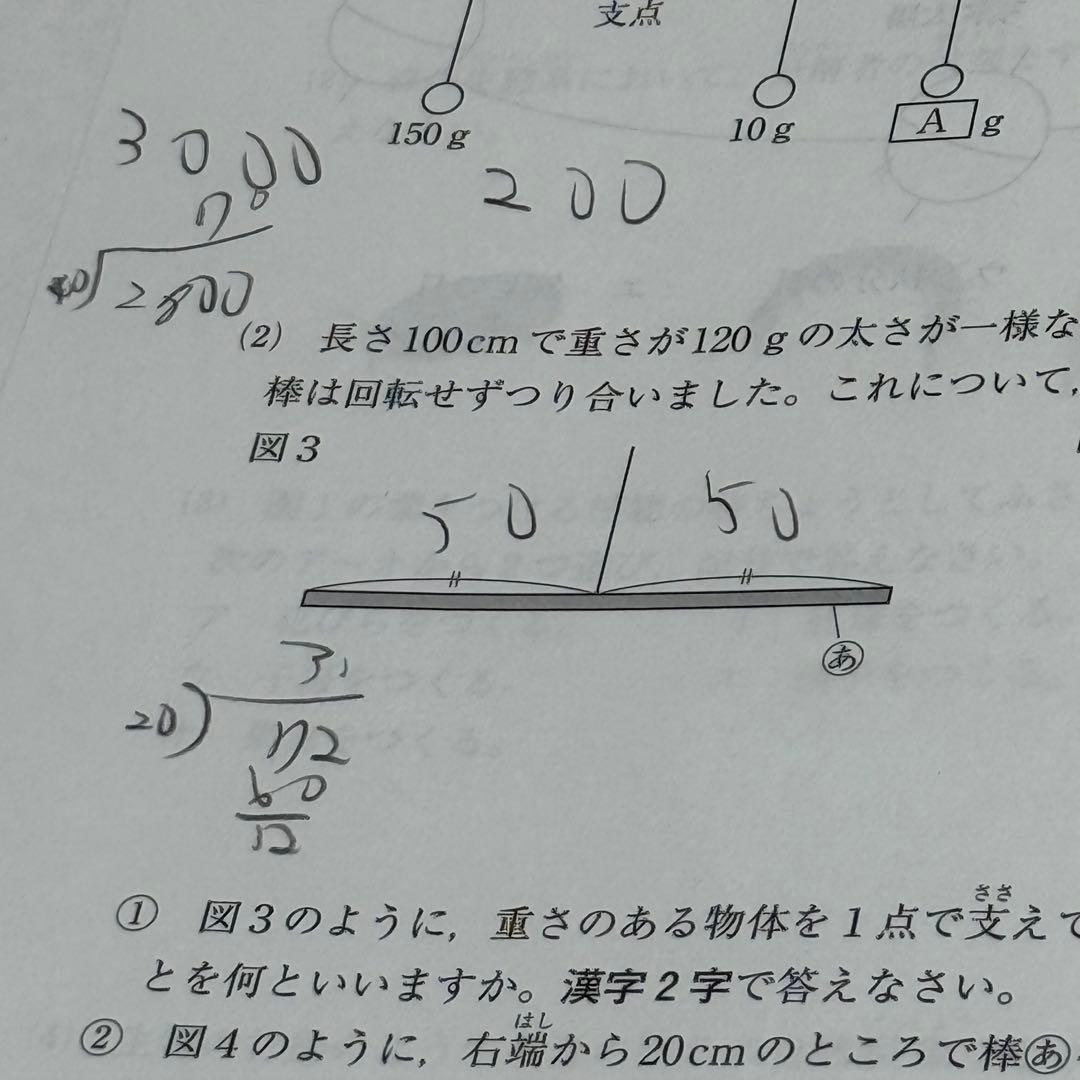 支点
150g
10g
A g
3000
200
70
2800
(2) 長さ100cmで重さが120gの太さが一様な
棒は回転せずつり合いました。これについて,
図3
50 50
あ
3
20
72
60
12
① 図3のように,重さのある物体を1点で支えて
ささ
とを何といいますか。漢字2字で答えなさい。
② 図4のように,右端から20cmのところで棒あ
はし